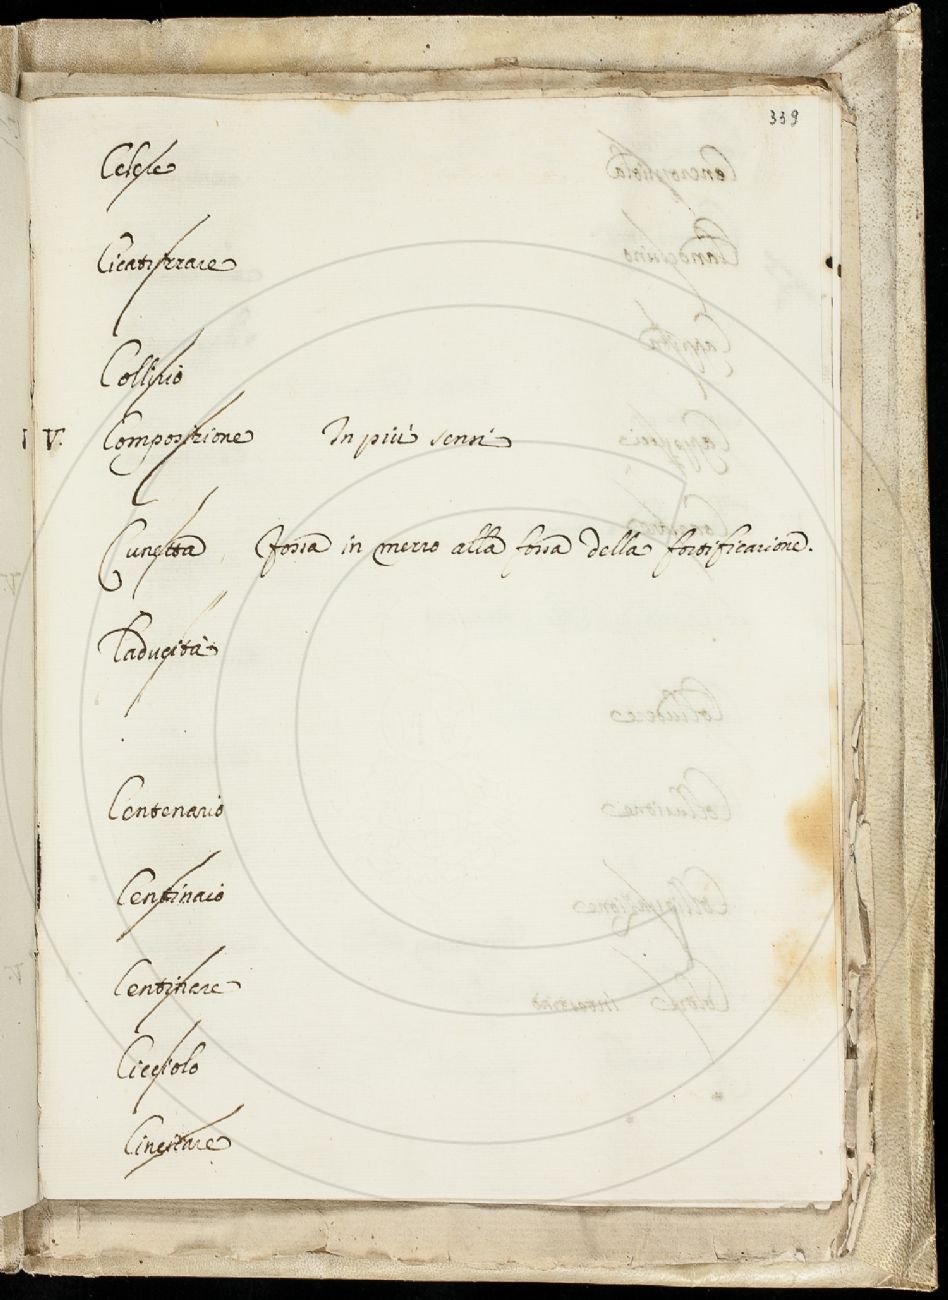 339
Celeste
Cicatrizzare
Collirio
V. Composizione In piu' sensi
Cunetta, fossa in mezzo alla fossa della fortificazione.
Caducità
Centenario
Centinaio
Centinare
Cicciolo